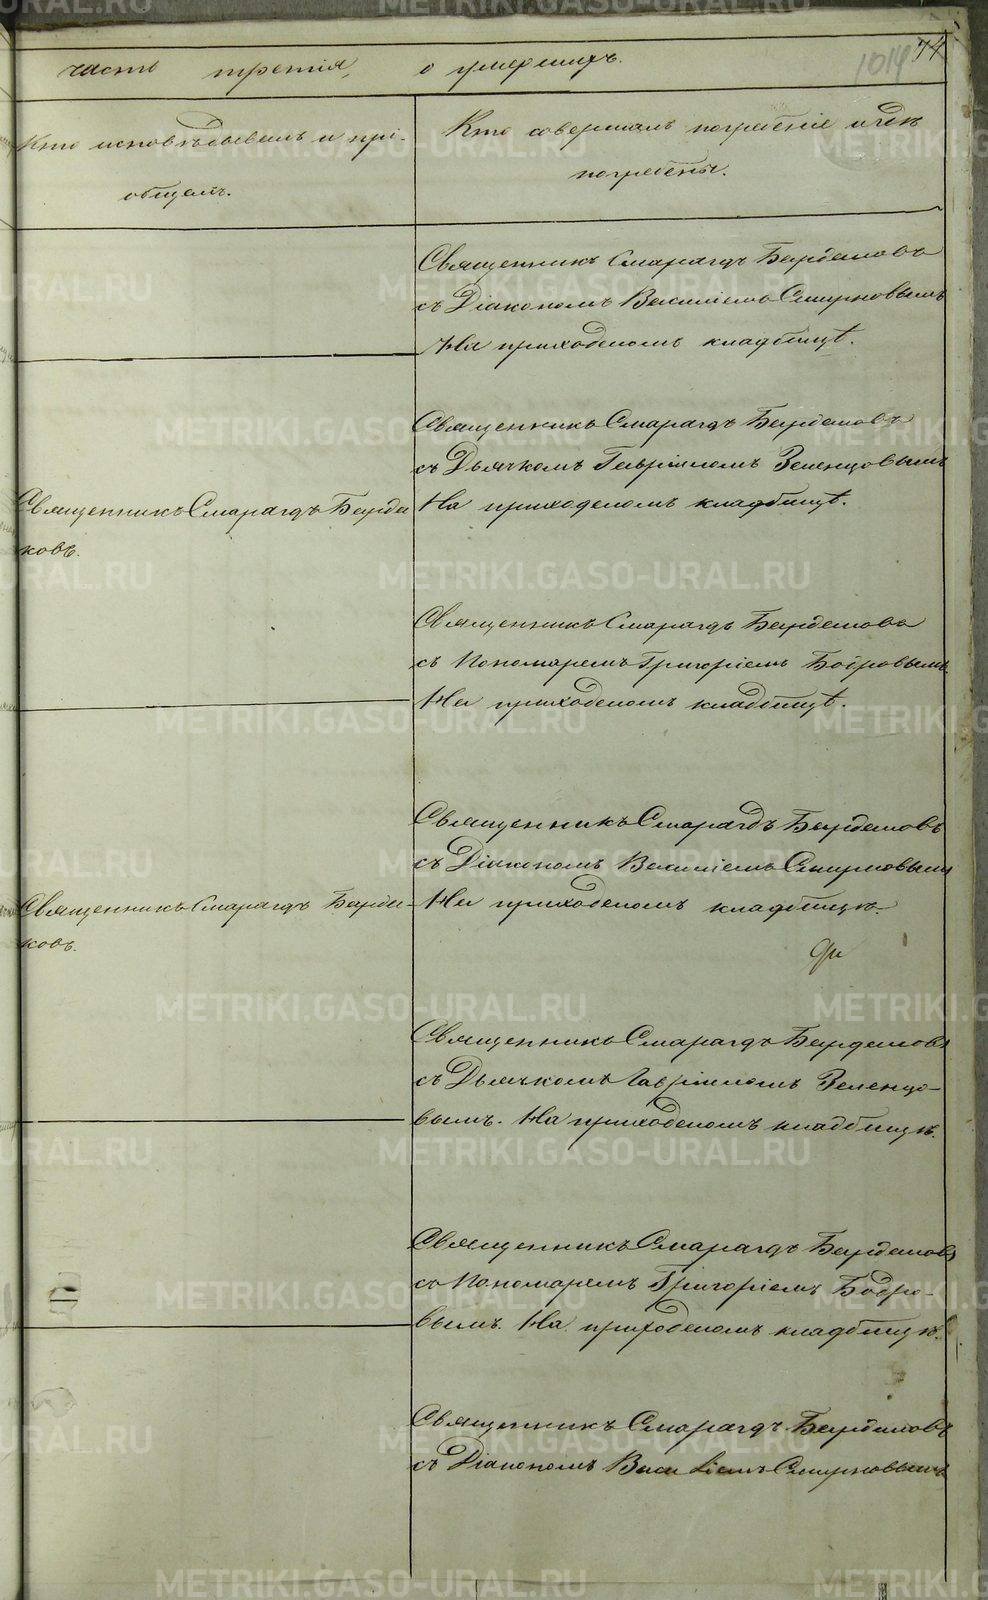 часть третія, о умершихъ.
1014 74
Кто исповѣдывалъ и прі-
общалъ.
Кто совершалъ погребеніе и гдѣ
погребены.
Священникъ Смарагдъ Бардаковъ
съ Діакономъ Василіемъ Смирновымъ
На приходскомъ кладбищѣ.
Священникъ Смарагдъ Бардаковъ
съ Дьячкомъ Гавріиломъ Зеленцовымъ
На приходскомъ кладбищѣ.
Священникъ Смарагдъ Барда
ковъ.
Священникъ Смарагдъ Бардаковъ
съ Пономаремъ Григоріемъ Бобровымъ.
На приходскомъ кладбищѣ.
Священникъ Смарагдъ Бардаковъ
съ Діакономъ Василіемъ Смирновымъ
На приходскомъ кладбищѣ.
Священникъ Смарагдъ Барда-
ковъ.
Священникъ Смарагдъ Бардаковъ
съ Дьячкомъ Гавріиломъ Зеленцо-
вымъ. На приходскомъ кладбищѣ.
Священникъ Смарагдъ Бардаковъ
съ Пономаремъ Григоріемъ Бобро-
вымъ. На приходскомъ кладбищѣ.
Священникъ Смарагдъ Бардаковъ
съ Діакономъ Василіемъ Смирновымъ
METRIKI.GASO-URAL.RU